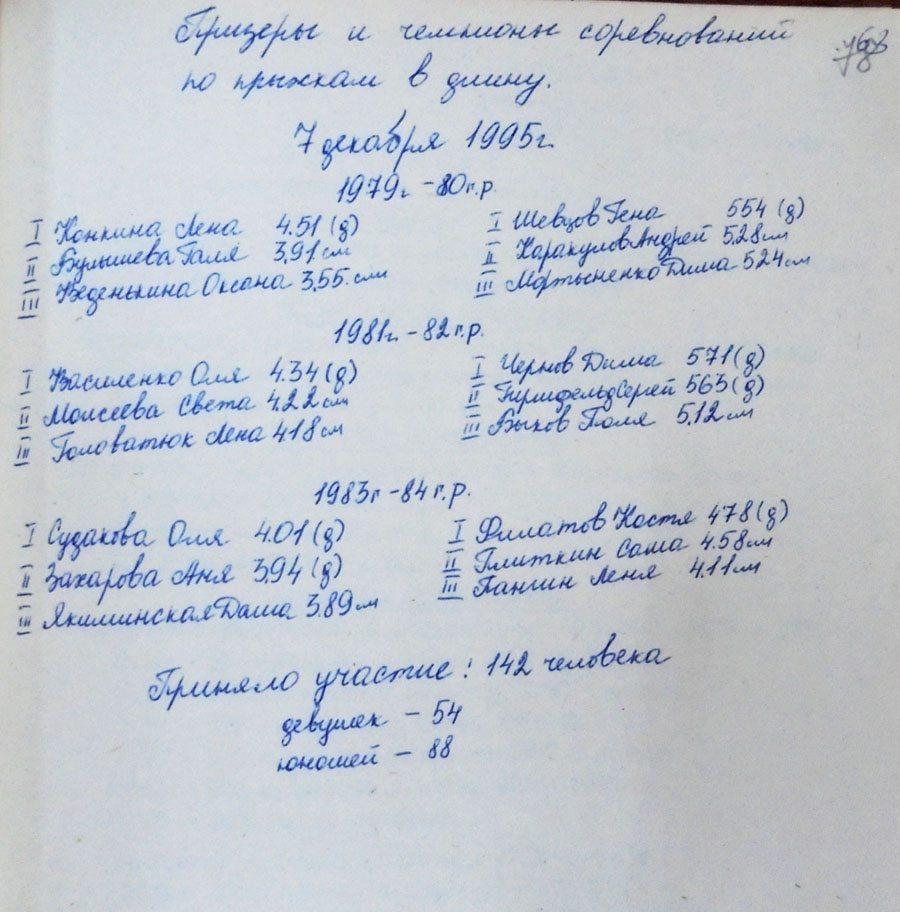 Призеры и чемпионы соревнований
по прыжкам в длину.
7 декабря 1995г.
1979г. - 80 г.р.
I Конкина Лена 4.51 (д)
II Булышева Галя 3,91 см
III Веденькина Оксана 3,55. см
I Шевцов Гена 554 (д)
II Каракулов Андрей 5,28 см
III Мартыненко Дима 524 см
1981г. - 82 г.р.
I Василенко Оля 4.34 (д)
II Моисеева Света 4,22 см
III Головатюк Лена 418 см
I Чернов Дима 571 (д)
II 563 (д)
III Быков 5,12 см
1983г - 84 г.р.
I Судакова Оля 4.01 (д)
II Захарова Аня 3,94 (д)
III Якиминская Даша 3.89 м
I Филатов Костя 478 (д)
II Плиткин Саша 4.58 м
III Паншин Леня 4.11 см
Приняло участие: 142 человека
девушек - 54
юношей - 88